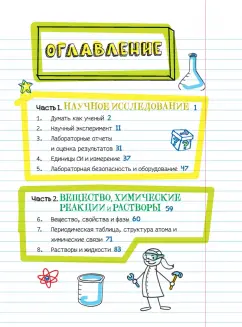 ОГЛАВЛЕНИЕ
Часть 1. НАУЧНОЕ ИССЛЕДОВАНИЕ 1
1. Думать как ученый 2
2. Научный эксперимент 11
3. Лабораторные отчеты
и оценка результатов 31
4. Единицы СИ и измерение 37
5. Лабораторная безопасность и оборудование 47
Часть 2. ВЕЩЕСТВО, ХИМИЧЕСКИЕ
РЕАКЦИИ И РАСТВОРЫ 59
6. Вещество, свойства и фазы 60
7. Периодическая таблица, структура атома и
химические связи 71
8. Растворы и жидкости 83